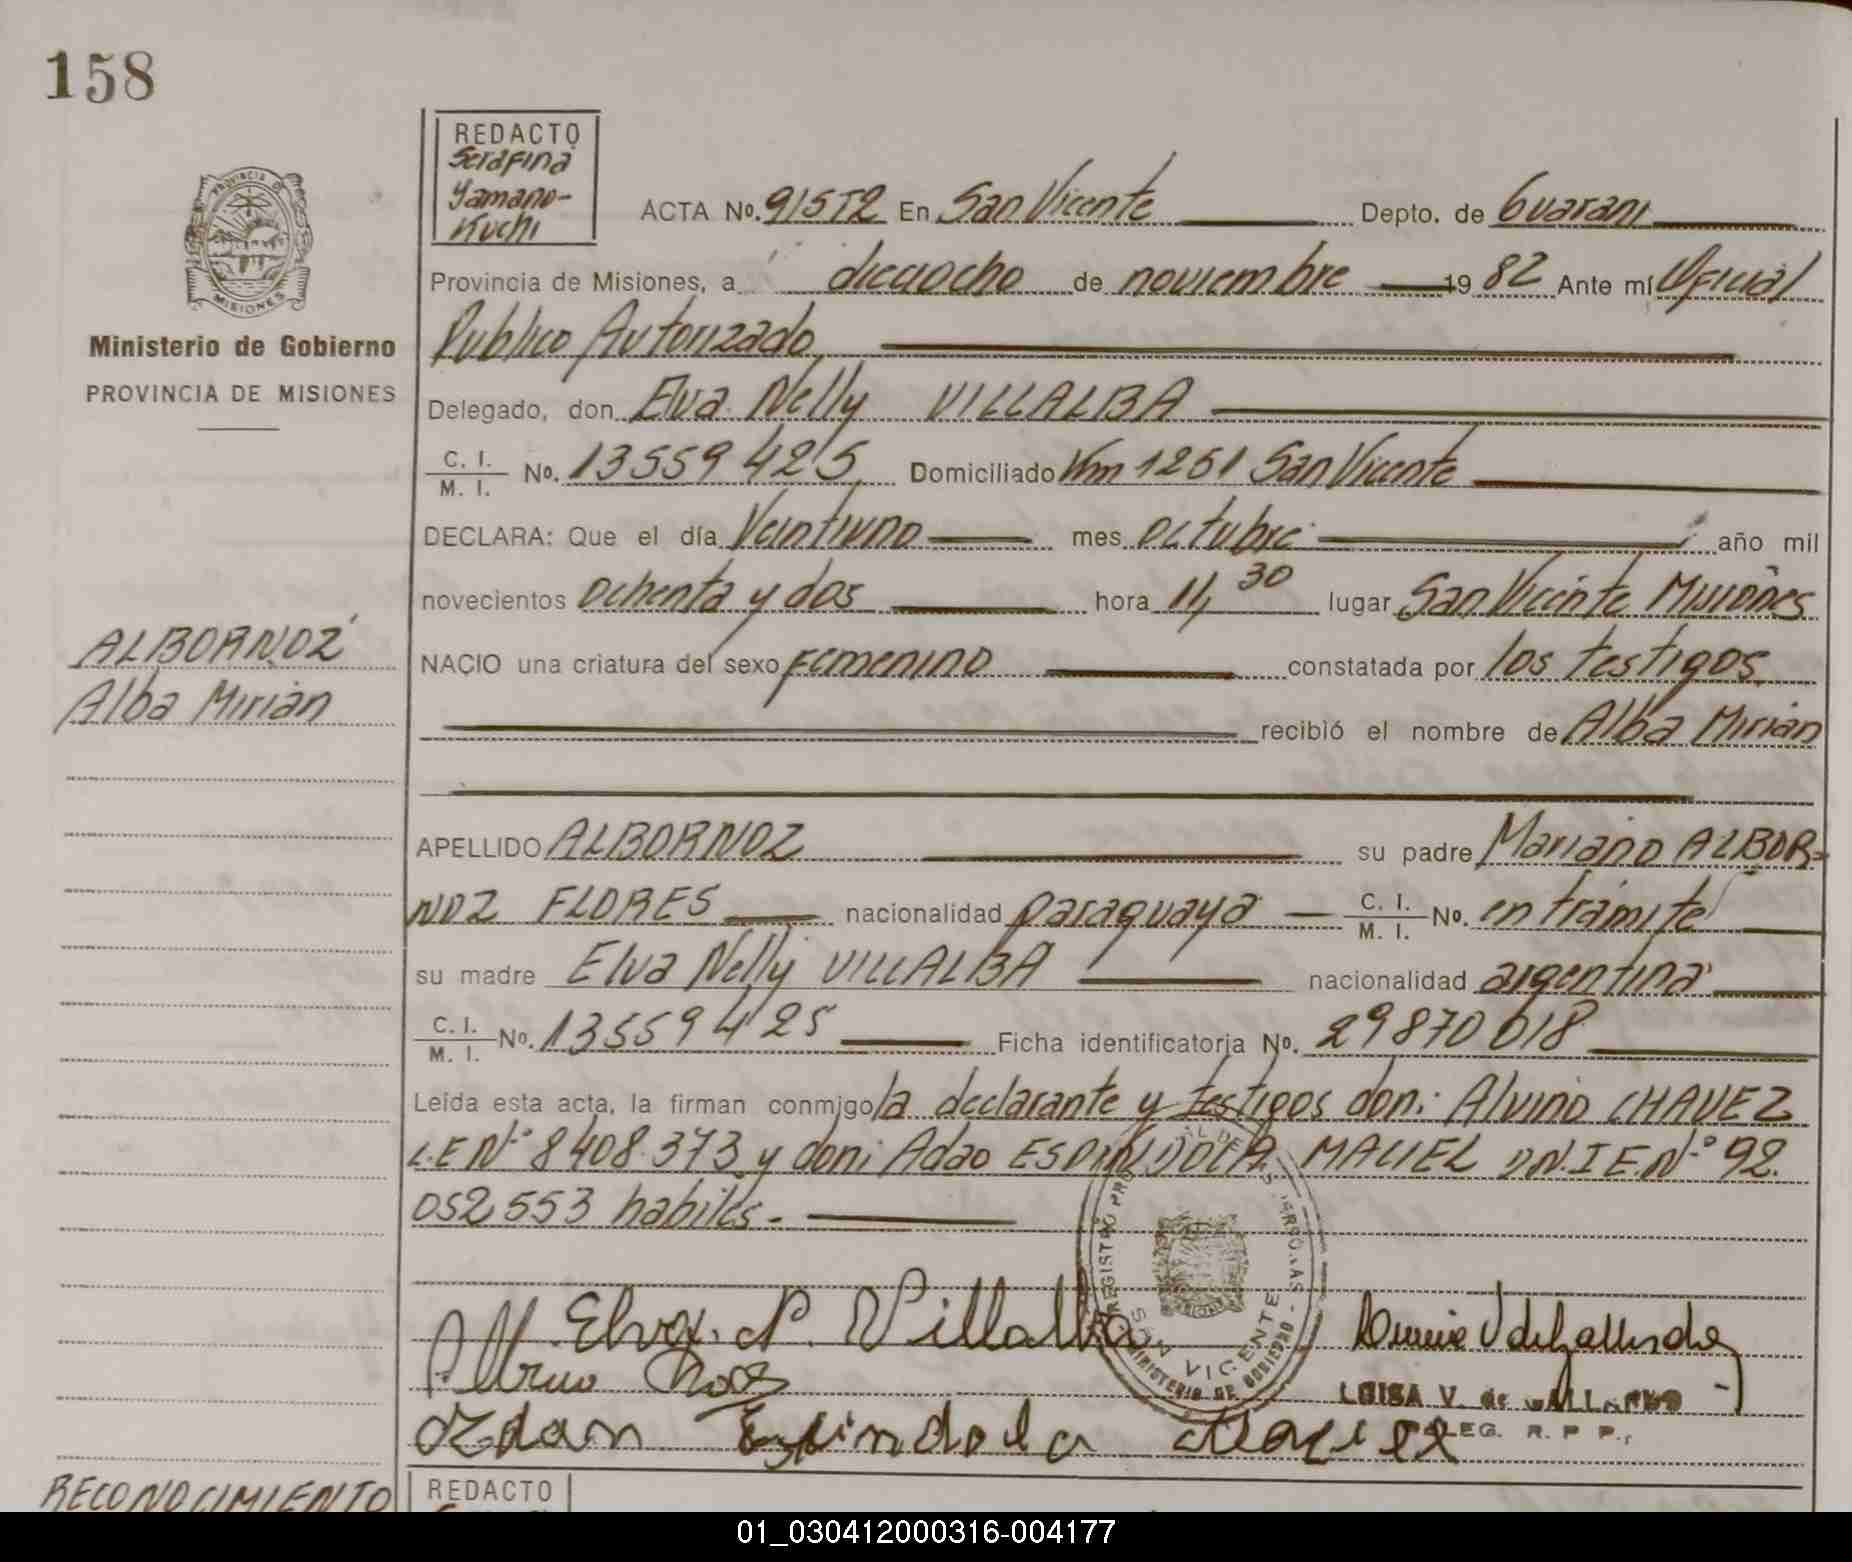 158
REDACTO
Serafina
Yamano-
Kuchi
PROVINCIA DE
MISIONES
Ministerio de Gobierno
PROVINCIA DE MISIONES
ACTA No. 91572 En San Vicente Depto. de Guarani
Provincia de Misiones, a dieciocho de noviembre 1982 Ante mí Oficial
Publico Autorizado
Delegado, don Elva Nelly VILLALBA
C. I. / M. I. No. 13559425 Domiciliado Km 1251 San Vicente
DECLARA: Que el día Veintiuno mes octubre año mil
novecientos ochenta y dos hora 11,30 lugar San Vicente Misiones
ALBORNOZ
Alba Mirian
NACIO una criatura del sexo femenino constatada por los testigos
recibió el nombre de Alba Mirian
APELLIDO ALBORNOZ su padre Mariano ALBOR-
NOZ FLORES nacionalidad paraguaya C. I. / M. I. No. en trámite
su madre Elva Nelly VILLALBA nacionalidad argentina
C. I. / M. I. No. 13559425 Ficha identificatoria No. 29870018
Leída esta acta, la firman conmigo la declarante y testigos don: Alvino CHAVEZ
L.E Nº 8408.373 y don: Adao ESPINDOLA MACIEL DN.I E.Nº 92.
052553 habiles.-
Elva. N. Villalba
LUISA V. de GALLARDO
DELEG. R. P P.
SAN VICENTE
MINISTERIO DE GOBIERNO
Espindola Maciel
RECONOCIMIENTO
REDACTO
01_030412000316-004177